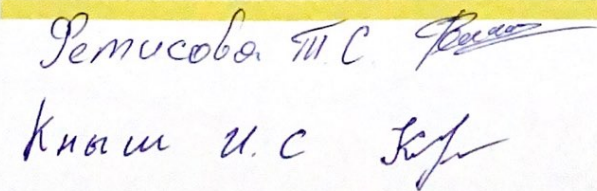 Фетисова Т С
Кныш И. С